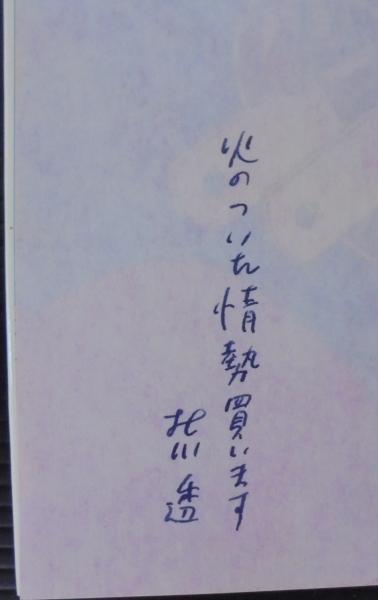 火のついた情勢買います
北川透